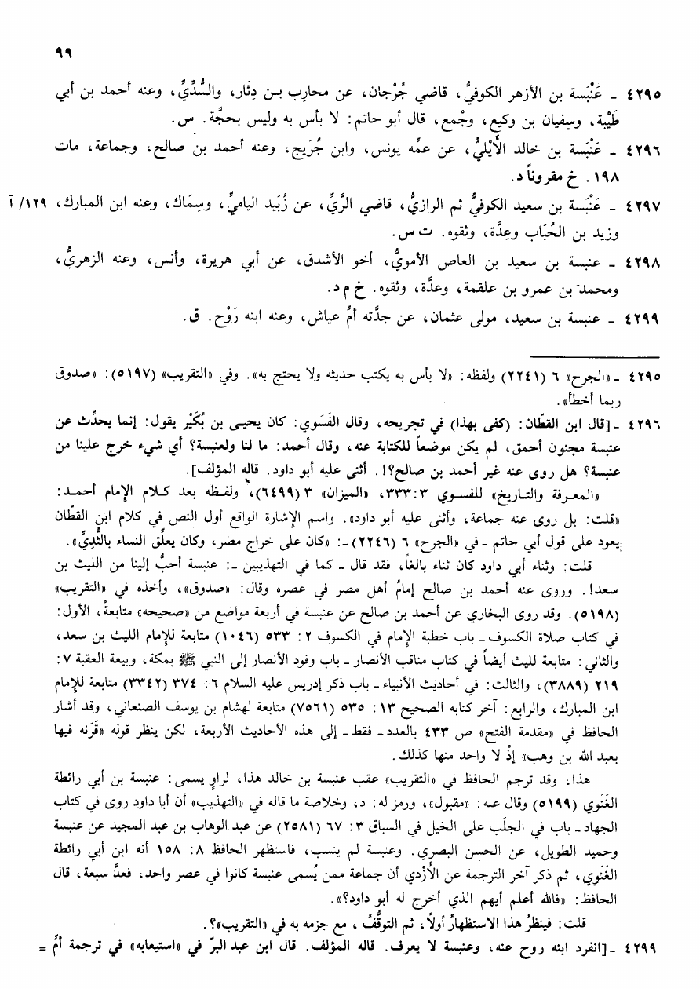 ٩٩
٤٢٩٥ ـ عَنْبَسة بن الأزهر الكوفيُّ، قاضي جُرْجان، عن محارِب بن دِثَار، والسُّدِّيِّ، وعنه أحمد بن أبي
طَيْبة، وسفيان بن وكيع، وجُمع، قال أبو حاتم: لا بأس به وليس بحجَّة. س.
٤٢٩٦ ـ عَنْبَسة بن خالد الأَيْليُّ، عن عمِّه يونس، وابن جُرَيج، وعنه أحمد بن صالح، وجماعة، مات
١٩٨. خ مقروناً د.
٤٢٩٧ ـ عَنْبَسة بن سعيد الكوفيُّ ثم الرازيُّ، قاضي الرَّيِّ، عن زُبَيد الياميِّ، وسِمَاك، وعنه ابن المبارك، ١٢٩/آ
وزيد بن الحُبَاب وعِدَّة، وثقوه. ت س.
٤٢٩٨ ـ عنبسة بن سعيد بن العاص الأمويُّ، أخو الأشدق، عن أبي هريرة، وأنس، وعنه الزهريُّ،
ومحمد بن عمرو بن علقمة، وعدَّة، وثقوه. خ م د.
٤٢٩٩ ـ عنبسة بن سعيد، مولى عثمان، عن جدَّته أمُّ عياش، وعنه ابنه رَوْح. ق.
٤٢٩٥ ـ «الجرح» ٦ (٢٢٤١) ولفظه: «لا بأس به يكتب حديثه ولا يحتج به». وفي «التقريب» (٥١٩٧): «صدوق
ربما أخطأ».
٤٢٩٦ ـ [قال ابن القطان: (كفى بهذا) في تجريحه، وقال الفَسَوي: كان يحيى بن بُكَيْر يقول: إنما يحدِّث عن
عنبسة مجنون أحمق، لم يكن موضعاً للكتابة عنه، وقال أحمد: ما لنا ولعنبسة؟ أي شيء خرج علينا من
عنبسة؟ هل روى عنه غير أحمد بن صالح؟!. أثنى عليه أبو داود. قاله المؤلف].
«المعرفة والتاريخ» للفسوي ٣: ٣٣٣، «الميزان» ٣ (٦٤٩٩)، ولفظه بعد كلام الإمام أحمد:
«قلت: بل روى عنه جماعة، وأثنى عليه أبو داود». واسم الإشارة الواقع أول النص في كلام ابن القطان
يعود على قول أبي حاتم ـ في «الجرح» ٦ (٢٢٤٦) ـ: «كان على خراج مصر، وكان يعلِّق النساء بالثُّدِيِّ».
قلت: وثناء أبي داود كان ثناء بالغاً، فقد قال ـ كما في التهذيبين ـ: عنبسة أحبُّ إلينا من الليث بن
سعد!. وروى عنه أحمد بن صالح إمامُ أهل مصر في عصره وقال: «صدوق»، وأخذه في «التقريب»
(٥١٩٨). وقد روى البخاري عن أحمد بن صالح عن عنبسة في أربعة مواضع من «صحيحه» متابعةً، الأول:
في كتاب صلاة الكسوف ـ باب خطبة الإمام في الكسوف ٢: ٥٣٣ (١٠٤٦) متابعة للإمام الليث بن سعد،
والثاني: متابعة لليث أيضاً في كتاب مناقب الأنصار ـ باب وفود الأنصار إلى النبي ﷺ بمكة، وبيعة العقبة ٧:
٢١٩ (٣٨٨٩)، والثالث: في أحاديث الأنبياء ـ باب ذكر إدريس عليه السلام ٦: ٣٧٤ (٣٣٤٢) متابعة للإمام
ابن المبارك، والرابع: آخر كتابه الصحيح ١٣: ٥٣٥ (٧٥٦١) متابعة لهشام بن يوسف الصنعاني، وقد أشار
الحافظ في «مقدمة الفتح» ص ٤٣٣ بالعدد ـ فقط ـ إلى هذه الأحاديث الأربعة، لكن ينظر قوله «قَرَنه فيها
بعبد الله بن وهب» إذْ لا واحد منها كذلك.
هذا، وقد ترجم الحافظ في «التقريب» عقب عنبسة بن خالد هذا، لراوٍ يسمى: عنبسة بن أبي رائطة
الغَنَوي (٥١٩٩) وقال عنه: «مقبول»، ورمز له: د، وخلاصة ما قاله في «التهذيب» أن أبا داود روى في كتاب
الجهاد ـ باب في الجلَب على الخيل في السباق ٣: ٦٧ (٢٥٨١) عن عبد الوهاب بن عبد المجيد عن عنبسة
وحميد الطويل، عن الحسن البصري. وعنبسة لم ينسب، فاستظهر الحافظ ٨: ١٥٨ أنه ابن أبي رائطة
الغَنَوي، ثم ذكر آخر الترجمة عن الأزْدي أن جماعة ممن يُسمى عنبسة كانوا في عصر واحد، فعدَّ سبعة، قال
الحافظ: «فالله أعلم أيهم الذي أخرج له أبو داود؟».
قلت: فينظرُ هذا الاستظهارُ أولاً، ثم التوقُّفُ، مع جزمه به في «التقريب»؟.
٤٢٩٩ ـ [انفرد ابنه روح عنه، وعنبسة لا يعرف. قاله المؤلف. قال ابن عبد البرّ في «استيعابه» في ترجمة أمِّ =